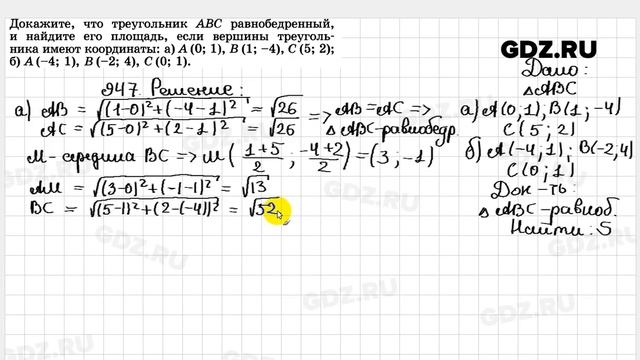 Докажите, что треугольник ABC равнобедренный,
и найдите его площадь, если вершины треуголь-
ника имеют координаты: а) A (0; 1), B (1; −4), C (5; 2);
б) A (−4; 1), B (−2; 4), C (0; 1).
GDZ.RU
947. Решение:
а) AB = √(1-0)²+(-4-1)² = √26
AC = √(5-0)²+(2-1)² = √26
=> AB=AC =>
△ABC-равнобедр.
M-середина BC => M(1+5/2; -4+2/2) = (3;-1)
AM = √(3-0)²+(-1-1)² = √13
BC = √(5-1)²+(2-(-4))² = √52
Дано:
△ABC
а) A(0;1), B(1;-4)
C(5;2)
б) A(-4,1); B(-2,4)
C(0;1)
Док-ть:
△ABC-равноб.
Найти: S
GDZ.RU
GDZ.RU
GDZ.RU